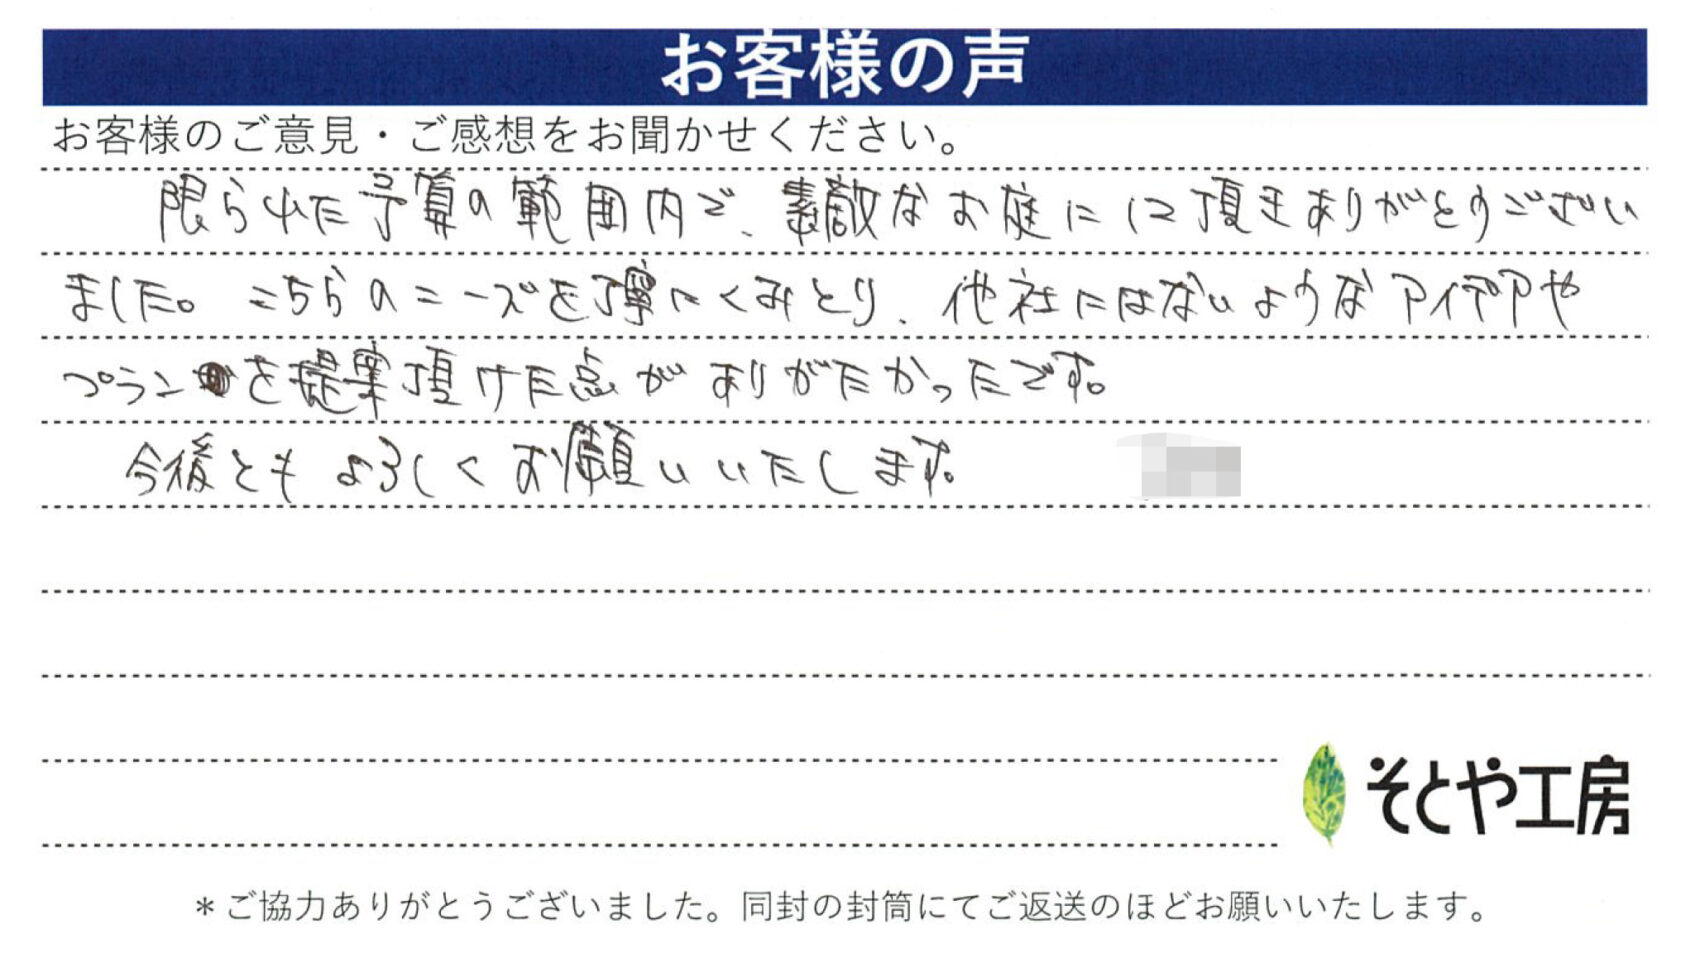 お客様の声
お客様のご意見・ご感想をお聞かせください。
限られた予算の範囲内で、素敵なお庭にに頂きありがとうござい
ました。こちらのニーズを丁寧にくみとり、他社にはないようなアイデアや
プランを提案頂けた点がありがたかったです。
今後ともよろしくお願いいたします。
そとや工房
＊ご協力ありがとうございました。同封の封筒にてご返送のほどお願いいたします。